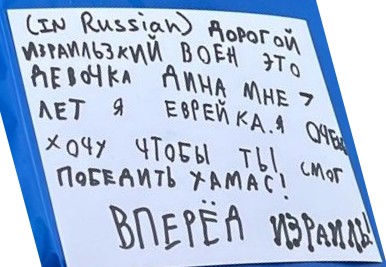 (IN Russian) ДОРОГОЙ
ИЗРАИЛЬЗКИЙ ВОЕН ЭТО
ДЕВОЧКА ДИНА МНЕ 7
ЛЕТ Я ЕВРЕЙКА.Я ОЧЕНЬ
ХОЧУ ЧТОБЫ ТЫ СМОГ
ПОБЕДИТЬ ХАМАС!
ВПЕРЁД ИЗРАИЛЬ!